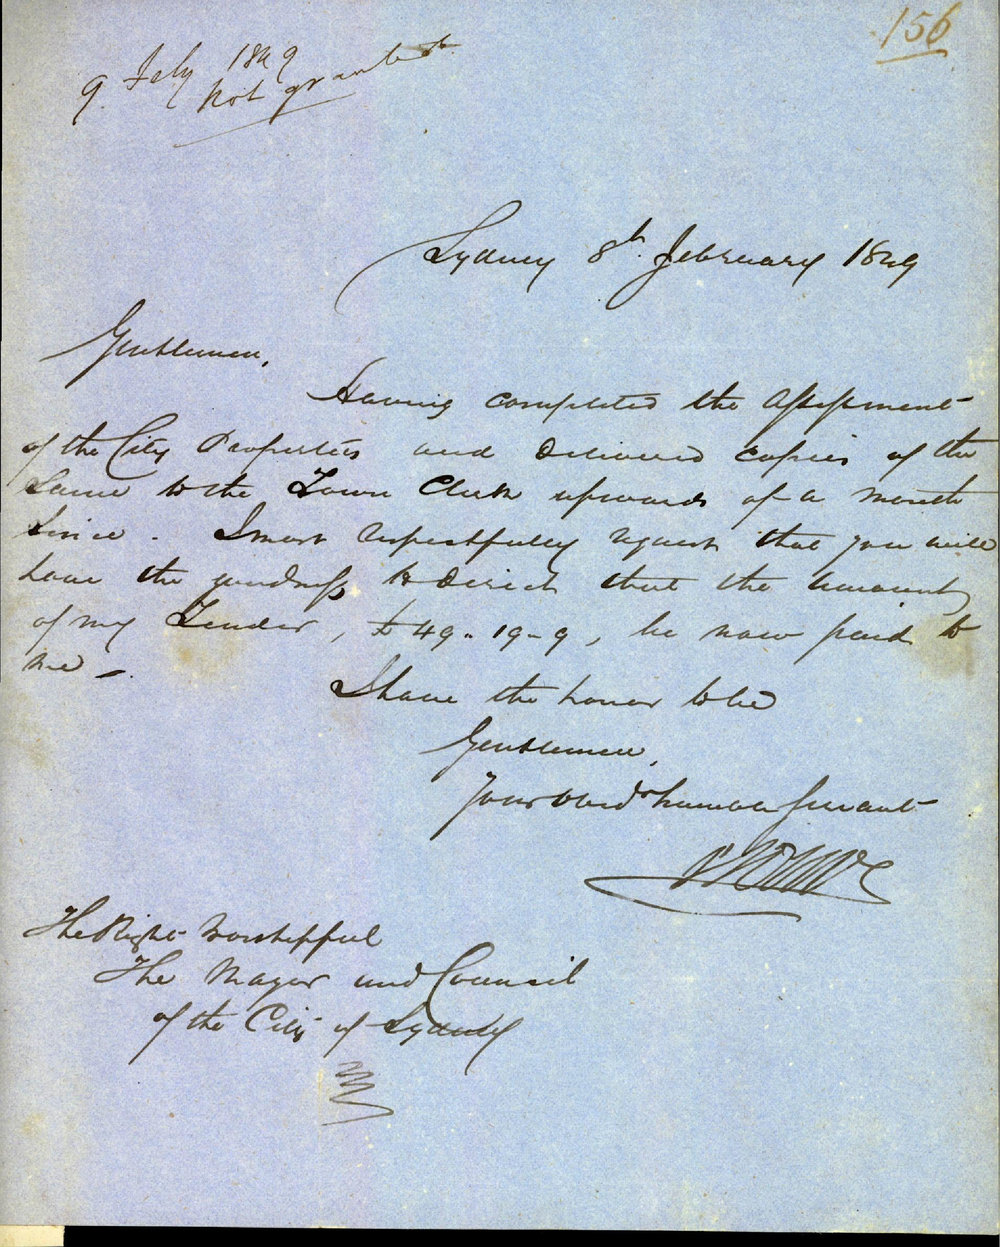 156
9 Feby 1849
Not granted
Sydney 8th February 1849
Gentlemen,
Having completed the Assessment
of the City Properties and delivered copies of the
Same to the Town Clerk upwards of a month
Since. I most respectfully request that you will
have the goodness to direct that the amount
of my Tender, £49-19-9, be now paid to
me -
I have the honor to be
Gentlemen,
Your Obedt humble Servant
The Right Worshipful
The Mayor and Council
of the City of Sydney